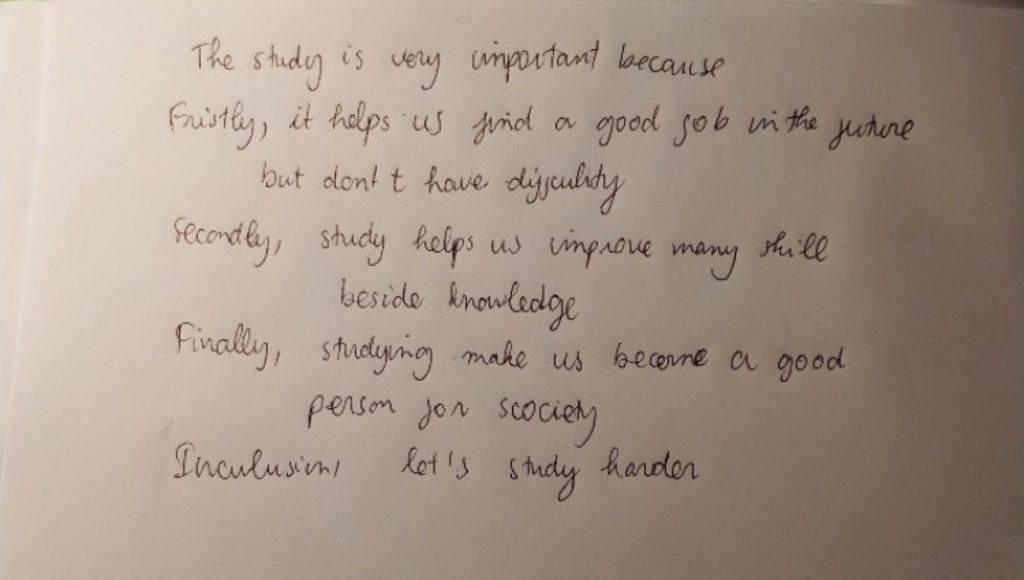 The study is very important because
Fristly, it helps us find a good job in the future
but don't have difficulity
Secondly, study helps us improve many skill
beside knowledge
Finally, studying make us become a good
person for scociety
Inculusion, let's study harder